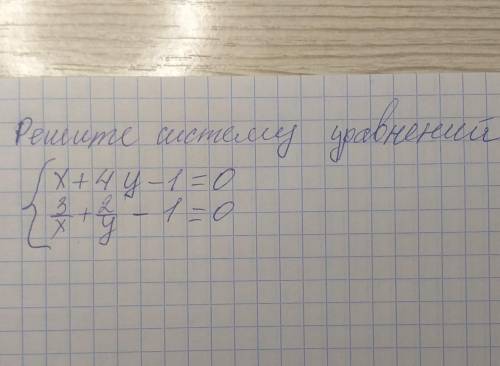 Решите систему уравнений
{ x + 4y - 1 = 0
3/x + 2/y - 1 = 0